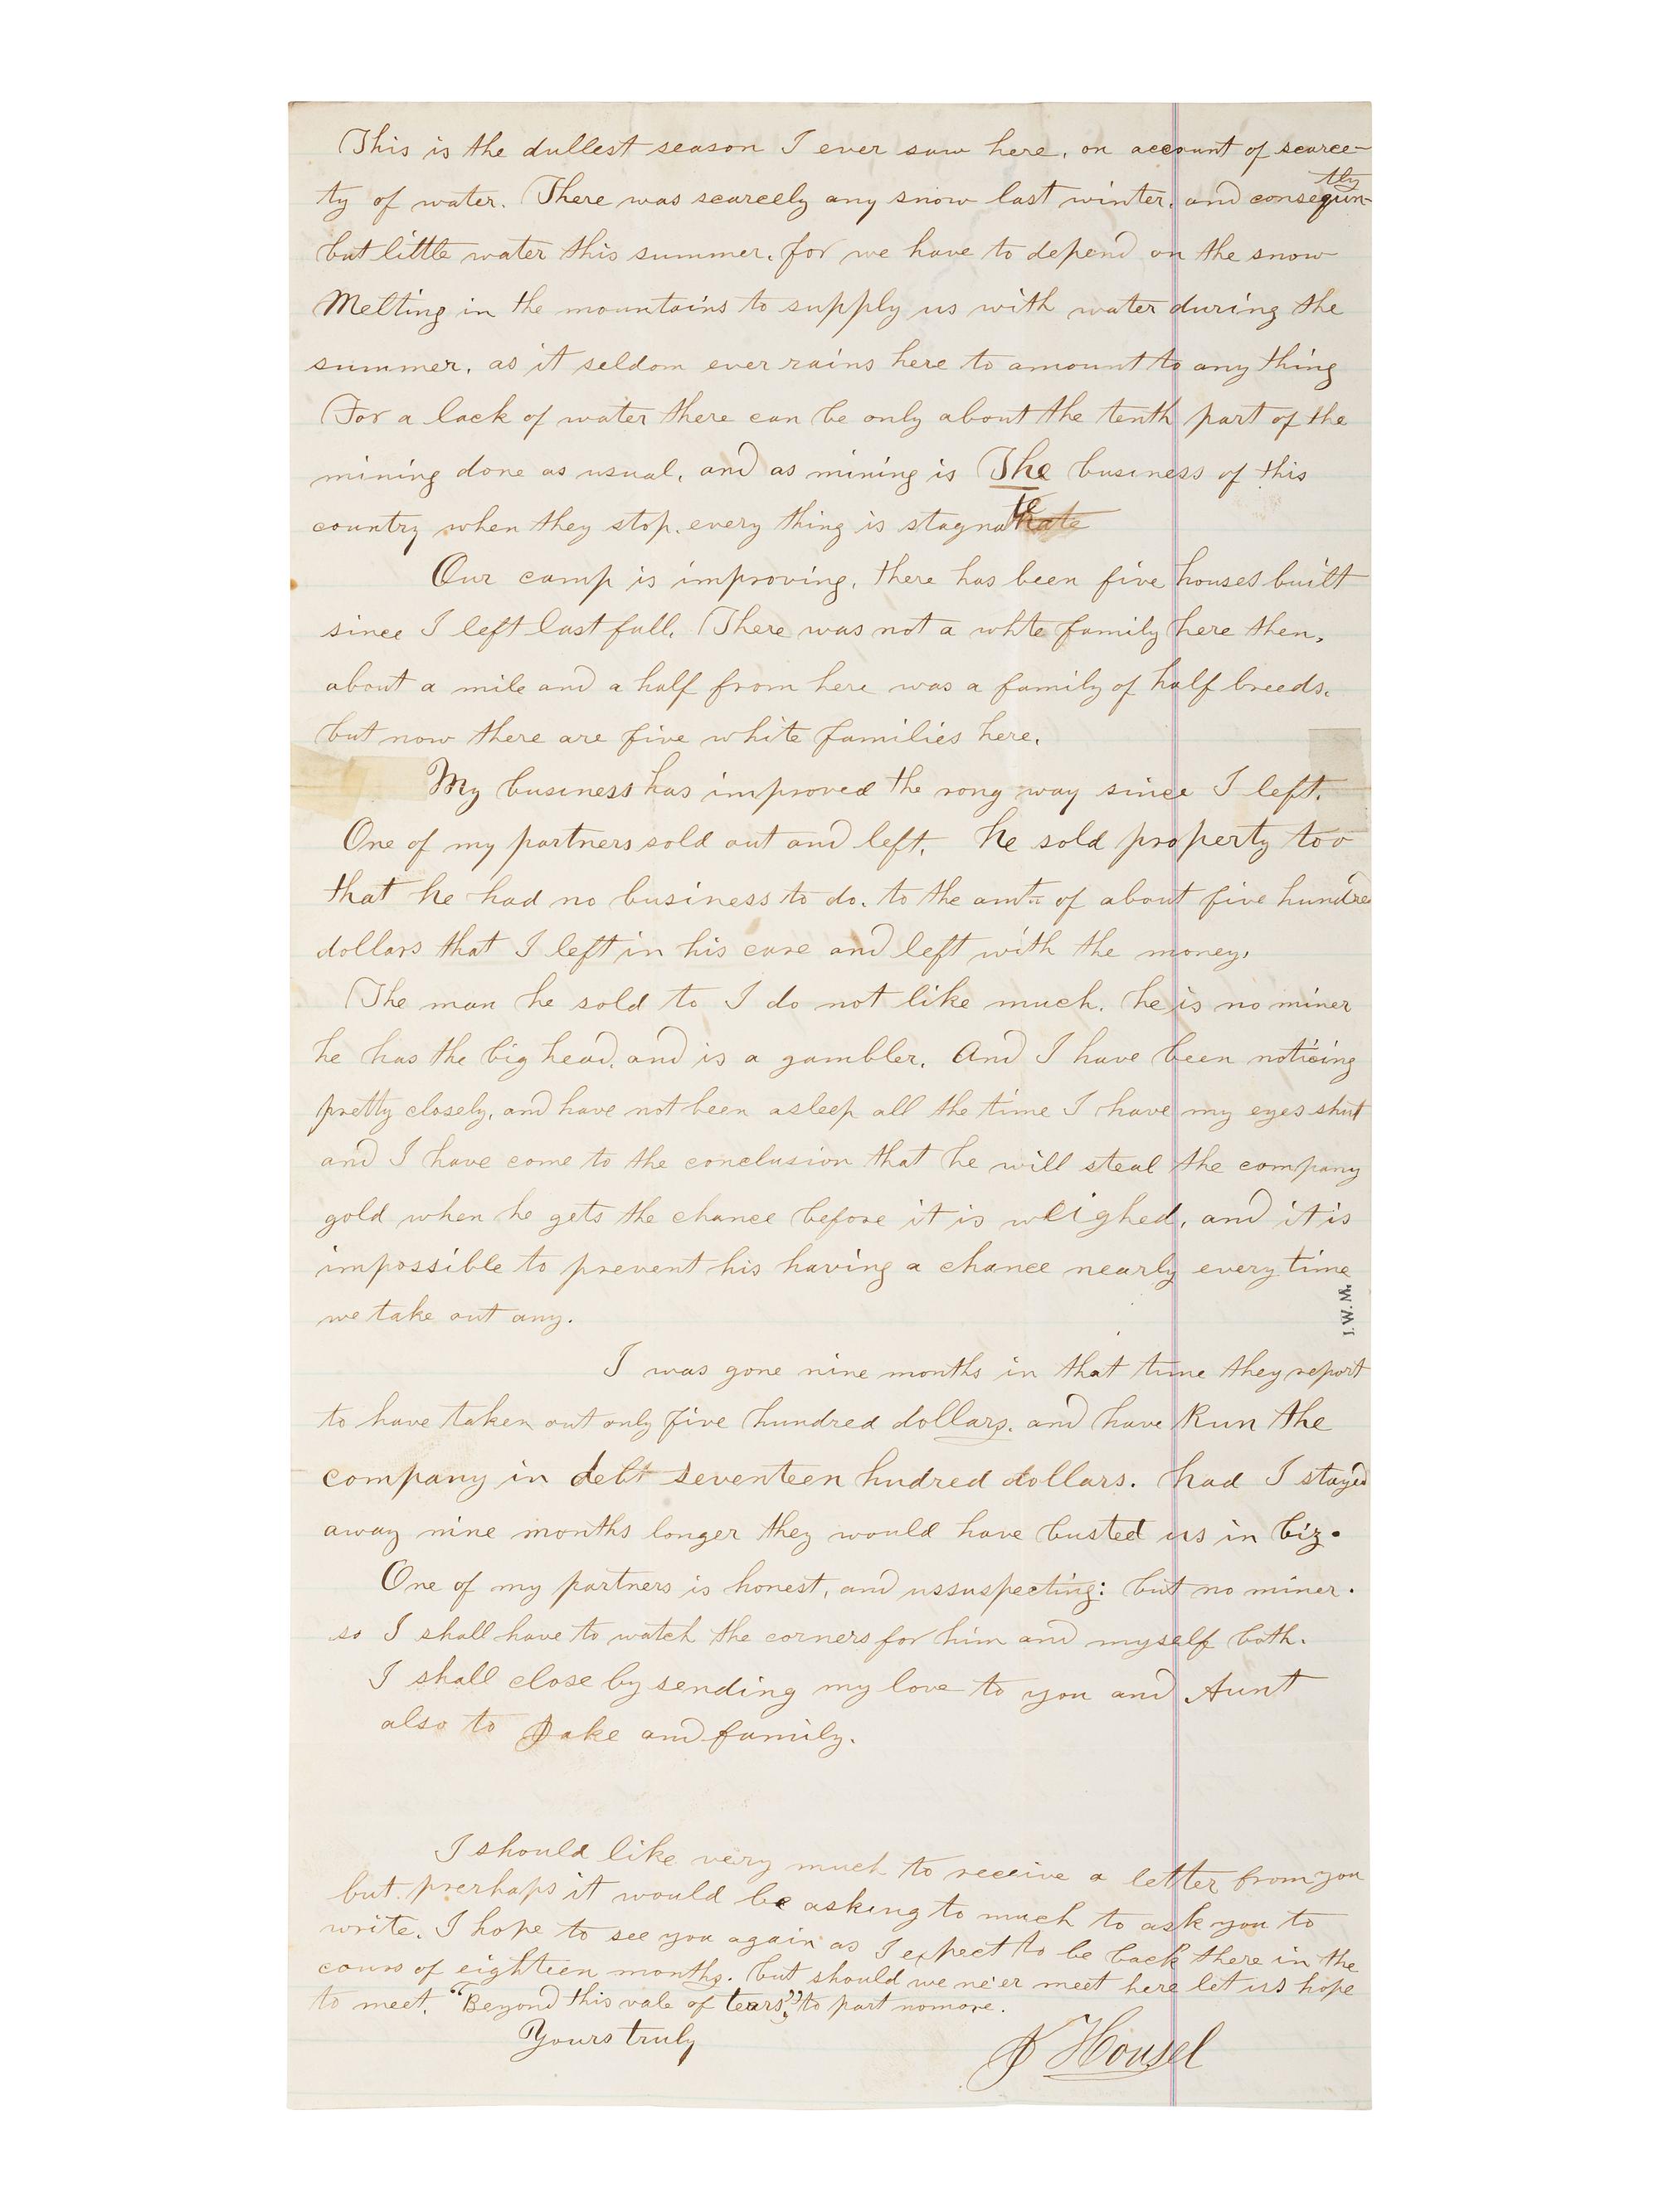 This is the dullest season I ever saw here, on account of scarce-
ty of water. There was scarcely any snow last winter, and consequn-
tly
but little water this summer, for we have to depend on the snow
Melting in the mountains to supply us with water during the
summer, as it seldom ever rains here to amount to any thing
For a lack of water there can be only about the tenth part of the
mining done as usual, and as mining is The business of this
country when they stop, every thing is stagnate
Our camp is improving, there has been five houses built
since I left last fall. There was not a whte family here then,
about a mile and a half from here was a family of half breeds,
but now there are five white families here.
My business has improved the rong way since I left.
One of my partners sold out and left, he sold property too
that he had no business to do, to the amt. of about five hundre
dollars that I left in his care and left with the money,
The man he sold to I do not like much, he is no miner
he has the big head, and is a gambler. And I have been noticing
pretty closely, and have not been asleep all the time I have my eyes shut
and I have come to the conclusion that he will steal the company
gold when he gets the chance before it is weighed, and it is
impossible to prevent his having a chance nearly every time
we take out any.
I.W.M.
I was gone nine months in that time they report
to have taken out only five hundred dollars, and have Run the
company in debt seventeen hudred dollars. had I stayed
away nine months longer they would have busted us in biz.
One of my partners is honest, and ussuspecting: but no miner.
so I shall have to watch the corners for him and myself both.
I shall close by sending my love to you and Aunt
also to Jake and family.
I should like very much to receive a letter from you
but prerhaps it would be asking to much to ask you to
write. I hope to see you again as I expect to be back there in the
cours of eighteen months. but should we ne'er meet here let us hope
to meet, "Beyond this vale of tears," to part nomore.
Yours truly
J Housel